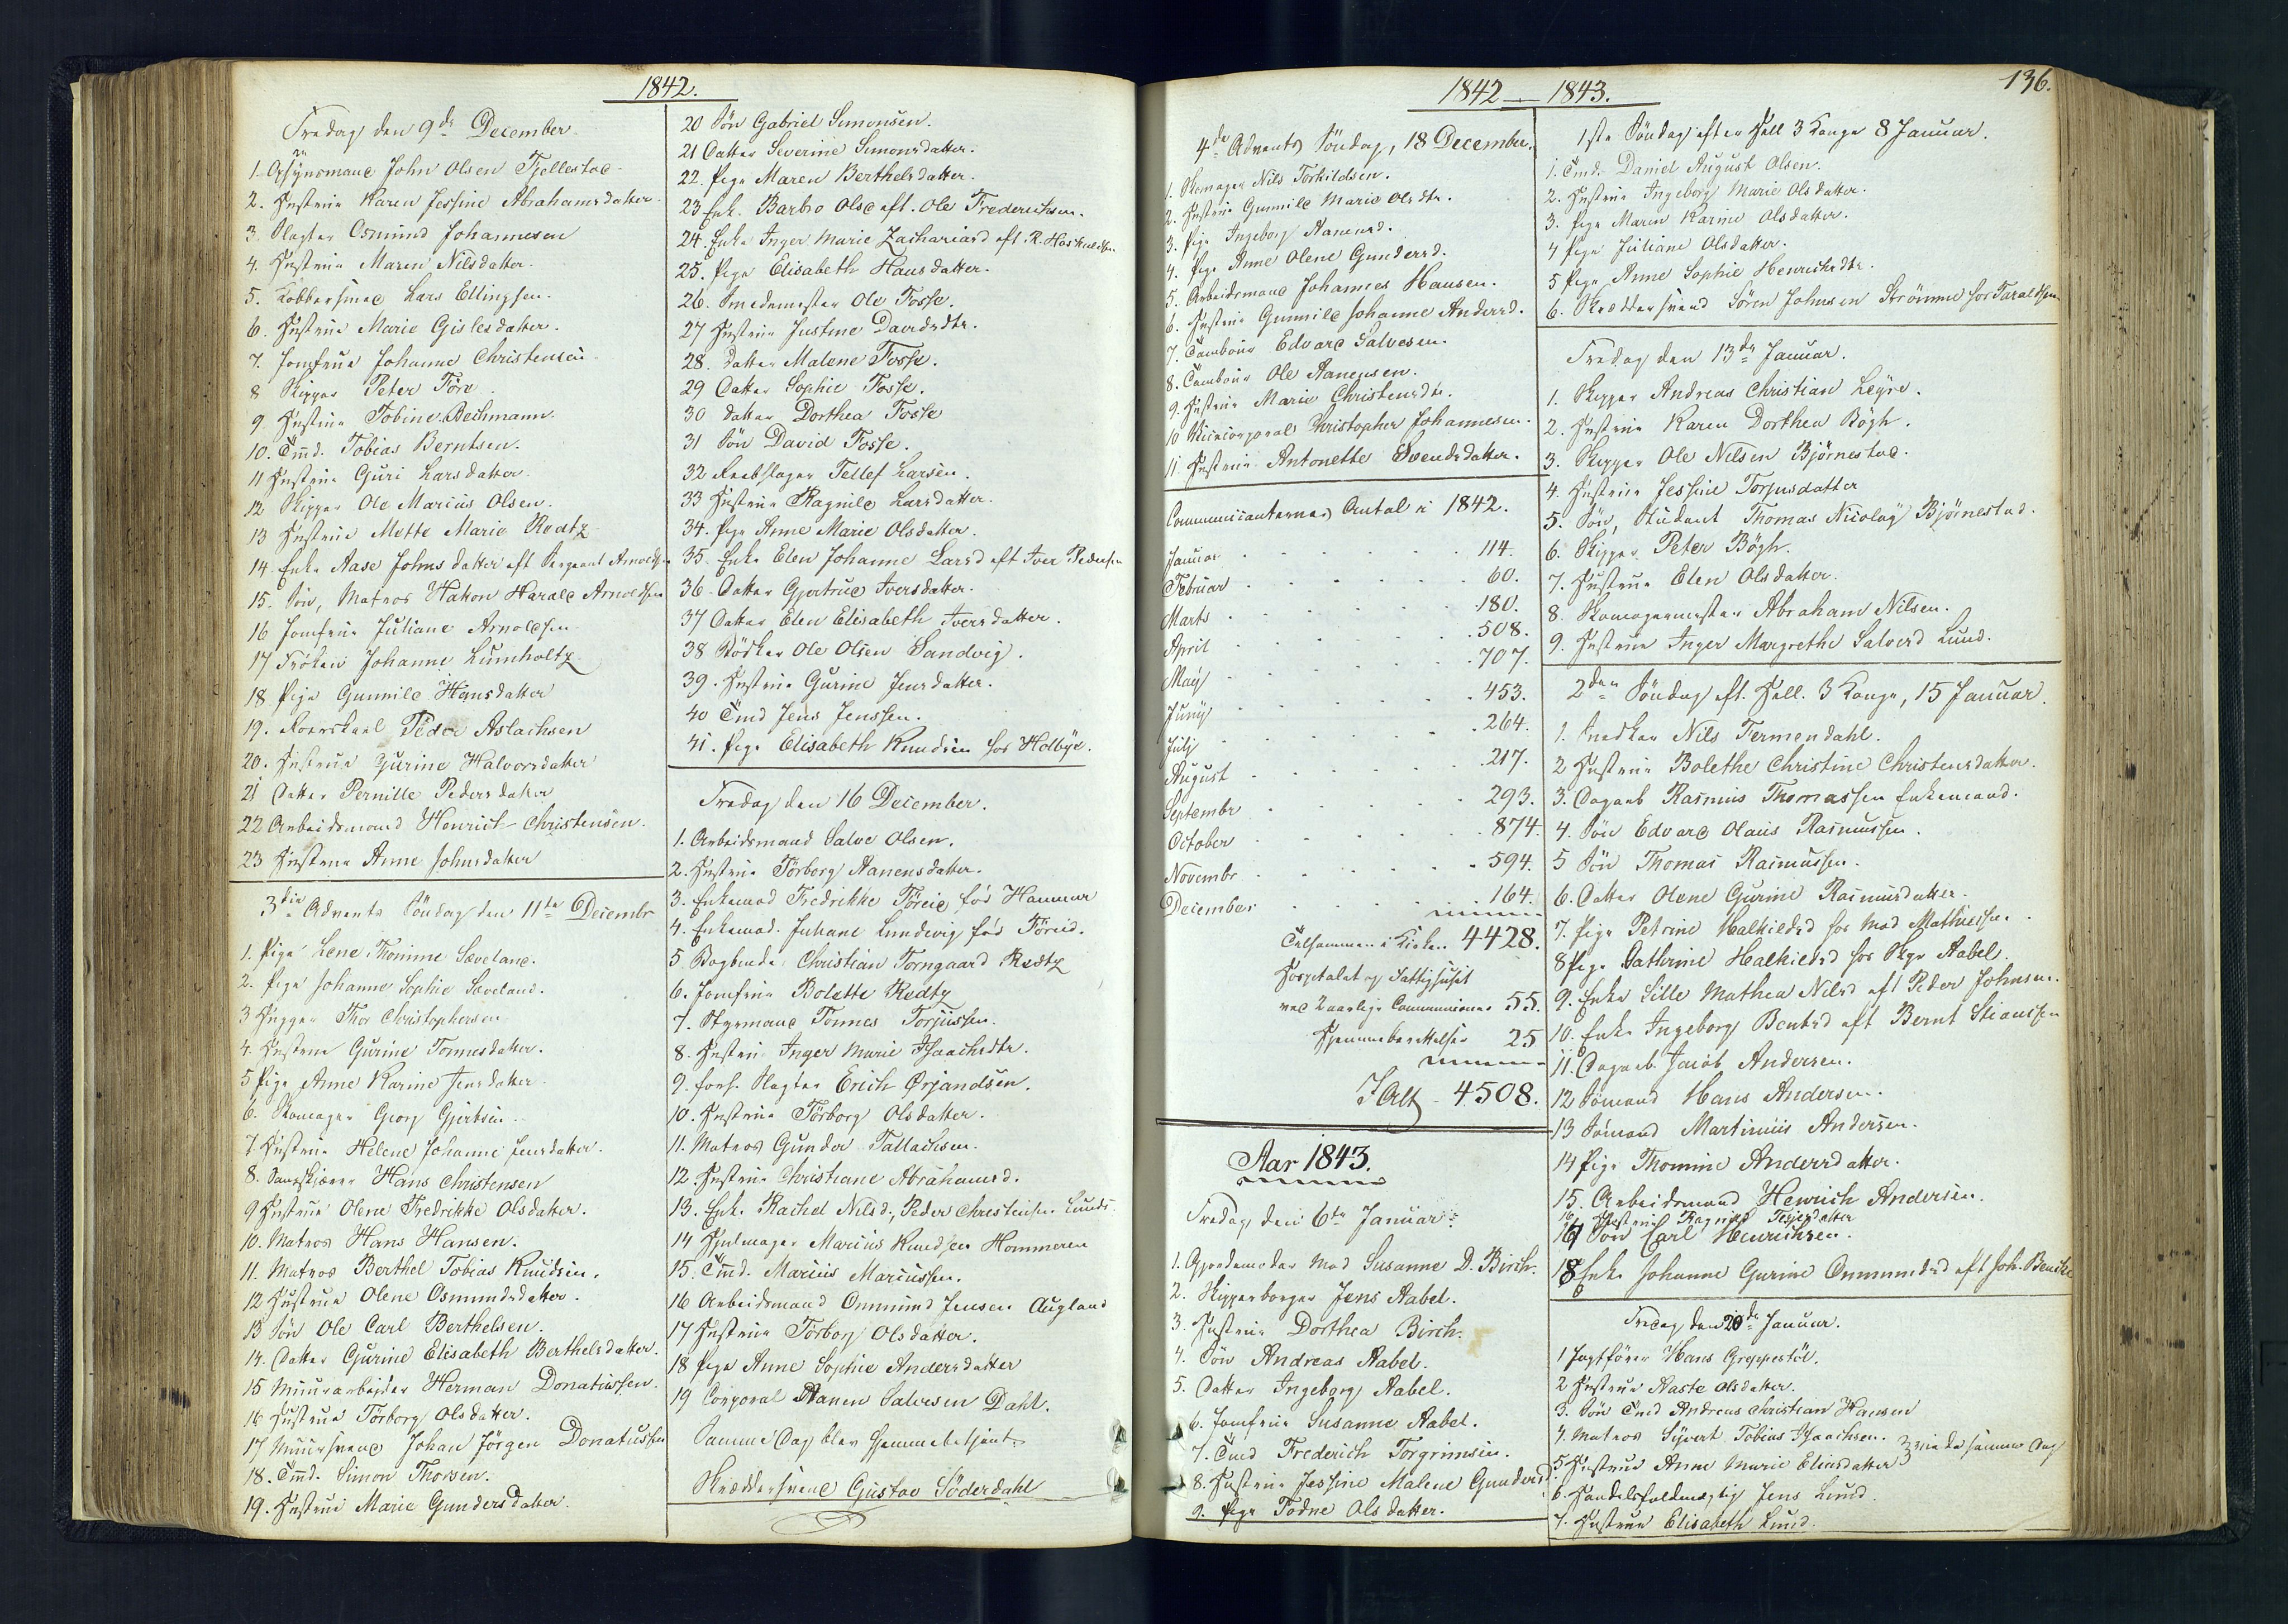 1842.
Fredag den 9de December
1. Opsynsmand John Olsen Fjellestad
2. Hustrue Karen Jessine Abrahamsdatter
3. Slagter Osmund Johannesen
4. Hustrue Maren Nilsdatter.
5. Kobbersmed Lars Ellingsen.
6. Hustrue Marie Gislesdatter.
7. Jomfrue Johanne Christensen
8 Skipper Peter Före
9 Hustrue Tobine Bechmann.
10. Tmd. Tobias Berntsen.
11 Hustrue Guri Larsdatter
12 Skipper Ole Marius Olsen.
13 Hustrue Mette Marie Roedtz
14 Enke Aase Johnsdatter eft Sergeant Arnoldsen
15. Søn, Matros Hakon Harald Arnoldsen
16 Jomfrue Juliane Arnoldsen
17 Frøken Johanne Lumholtz
18 Pige Gunnild Hansdatter
19. Roerskarl Peder Aslachsen
20. Hustrue Gurine Halvorsdatter
21 Datter Pernille Pedersdatter
22 Arbeidsmand Henrich Christensen.
23 Hustrue Anne Johnsdatter
3die Advents Söndag den 11te Decembr
1. Pige Lene Thomine Sæveland.
2. Pige Johanne Sophie Sæveland.
3 Hugger Thor Christophersen
4. Hustrue Gurine Tonnesdatter.
5 Pige Anne Karine Jensdatter
6. Skomager Georg Gjertsen
7 Hustrue Helene Johanne Jensdatter.
8. Hans Christensen
9 Hustrue Olene Fredrikke Olsdatter.
10. Matros Hans Hansen.
11. Matros Berthel Tobias Knudsen.
12 Hustrue Olene Osmundsdatter.
13 Søn Ole Carl Berthelsen.
14. Datter Gurine Elisabeth Berthelsdatter.
15 Muurarbeider Herman Donatussen.
16 Hustrue Törborg Olsdatter.
17 Muursvend Johan Jörgen Donatussen
18. Tmd. Simon Thorsen.
19. Hustrue Marie Gundersdatter.
20 Søn Gabriel Simonsen.
21 Datter Severine Simonsdatter.
22. Pige Maren Berthelsdatter.
23 Enk. Barbro Olsd eft. Ole Frederichsen.
24. Enke Inger Marie Zachariasd eft. R. Hoskuldsen
25. Pige Elisabeth Hansdatter.
26. Smedemester Ole Fosse.
27 Hustrue Justine Davidsdtr.
28. datter Malene Fosse.
29 Datter Sophie Fosse.
30 datter Dorthea Fosse
31 Søn David Fosse.
32 Reebslager Tellef Larsen.
33 Hustrue Ragnild Larsdatter.
34. Pige Anne Marie Olsdatter.
35. Enke Elen Johanne Larsd eft Iver Pedersen
36. Datter Gjertrud Iversdatter.
37 Datter Elen Elisabeth Iversdatter.
38 Bödker Ole Olsen Sandvig.
39. Hustrue Gurine Jensdatter.
40 Tmd Jens Jenssen.
41. Pige Elisabeth Knudsen hos Holbye.
Fredag den 16 December.
1. Arbeidsmand Salve Olsen.
2. Hustrue Törborg Aanensdatter.
3. Enkemad Fredrikke Föreid fød Hammer
4. Enkemad. Juliane Lundevig fød Föreid.
5 Bogbinder Christian Torngaard Redtz
6. Jomfrue Bolette Redtz
7. Styrmand Tonnes Torjussen.
8. Hustrue Inger Marie Isaachsdtr.
9. forh. Slagter Erich Ørjandsen.
10. Hustrue Törborg Olsdatter.
11. Matros Gunder Tallachsen.
12. Hustrue Christiane Abrahamsd.
13. Enke Rachel Nilsd., Peder Christensen Lunds
14 Hjulmager Marius Knudsen Hommeren
15. Tmd. Marius Mariussen.
16 Arbeidsmand Onmund Jensen Augland
17 Hustrue Törborg Olsdatter.
18 Pige Anne Sophie Andersdatter
19 Corporal Aanen Salvesen Dahl.
Samme Dag blev hjemmebetjent:
Skræddersvend Gustav Söderdahl
1842 — 1843.
136.
4de Advents Söndag, 18 December.
1. Skomager Nils Torkildsen.
2. Hustrue Gunnild Marie Olsdtr.
3. Pige Ingeborg Aanensd.
4. Pige Anne Olene Gundersd.
5. Arbeidsmand Johannes Hansen.
6. Hustrue Gunnild Johanne Andersd.
7. Tambour Edvard Salvesen.
8. Tambour Ole Aanensen.
9. Hustrue Marie Christensdtr.
10 Vicecorporal Christopher Johannesen.
11. Hustrue Antonette Svendsdatter.
Communicanternes Antal i 1842.
Januar . . . . . 114.
Februar . . . . . 60.
Marts . . . . . 180.
April . . . . . 508.
May . . . . . 707.
Juny . . . . . 453.
July . . . . . 264.
August . . . . . 217.
Septembr . . . . . 293.
October . . . . . 874.
Novembr . . . . . 594.
December . . . . . 164.
Tilsammen i Kirken 4428.
Hospitalet og Fattighuset
ved 2 aarlige Communioner 55.
Hjemmeberettelser 25
I Alt - 4508.
Aar 1843.
Fredag den 6te Januar.
1. Gjordemoder Mad Susanne D. Birch.
2. Skipperborger Jens Aabel.
3. Hustrue Dorthea Birch.
4. Søn Andreas Aabel.
5. Datter Ingeborg Aabel.
6. Jomfrue Susanne Aabel.
7. Tmd Frederich Torgrimsen.
8. Hustrue Jessine Malene Gundersd.
9. Pige Todne Olsdatter.
1ste Söndag efter Hell 3 Konger 8 Januar.
1. Tmd. Daniel August Olsen.
2. Hustrue Ingeborg Marie Olsdatter.
3. Pige Maren Karine Olsdatter.
4 Pige Juliane Olsdatter.
5 Pige Anne Sophie Henrichsdtr.
6. Skræddersvend Sören Johnsen Strömme hos Taraldsen
Fredag den 13de Januar.
1. Skipper Andreas Christian Leyre.
2. Hustrue Karen Dorthea Bögh.
3. Skipper Ole Nilsen Björnestad.
4. Hustrue Jessine Torjusdatter
5. Søn, Student Thomas Nicolay Björnestad.
6. Skipper Peter Bögh.
7. Hustrue Elen Olsdatter.
8. Skomagermester Abraham Nilsen.
9. Hustrue Inger Margrethe Salvesd Lund.
2den Söndag eft. Hell. 3 Konger, 15 Januar.
1. Snedker Nils Termendahl.
2 Hustrue Bolethe Christine Christensdatter.
3. Dagarb Rasmus Thomassen Enkemand.
4. Søn Edvard Olaus Rasmussen.
5 Søn Thomas Rasmussen.
6. Datter Olene Gurine Rasmusdatter.
7. Pige Petrine Halkieldsd hos Mad Mathiesen.
8 Pige Cathrine Halkieldsd hos Skpr Aabel.
9. Enke Sille Mathea Nilsd eft Peder Johnsen.
10. Enke Ingeborg Bentsd eft Bernt Stiansen
11. Dagarb. Jacob Andersen.
12 Sömand Hans Andersen.
13 Sömand Martinius Andersen.
14 Pige Thomine Andersdatter.
15. Arbeidsmand Henrich Andersen.
16 Hustrue Ragnild Tesjersdatter
17 Søn Carl Henrichsen.
18 Enke Johanne Gurine Onmundsd eft Joh. Bencke
Fredag den 20de Januar.
1 Jagtfører Hans Greppestöl.
2 Hustrue Aaste Olsdatter.
3. Søn Tmd Andreas Christian Hansen
4. Matros Sijvert Tobias Isaachsen.
5 Hustrue Anne Marie Eliasdatter
viede samme Dag
6. Handelsfuldmægtig Jens Lund.
7. Hustrue Elisabeth Lund.